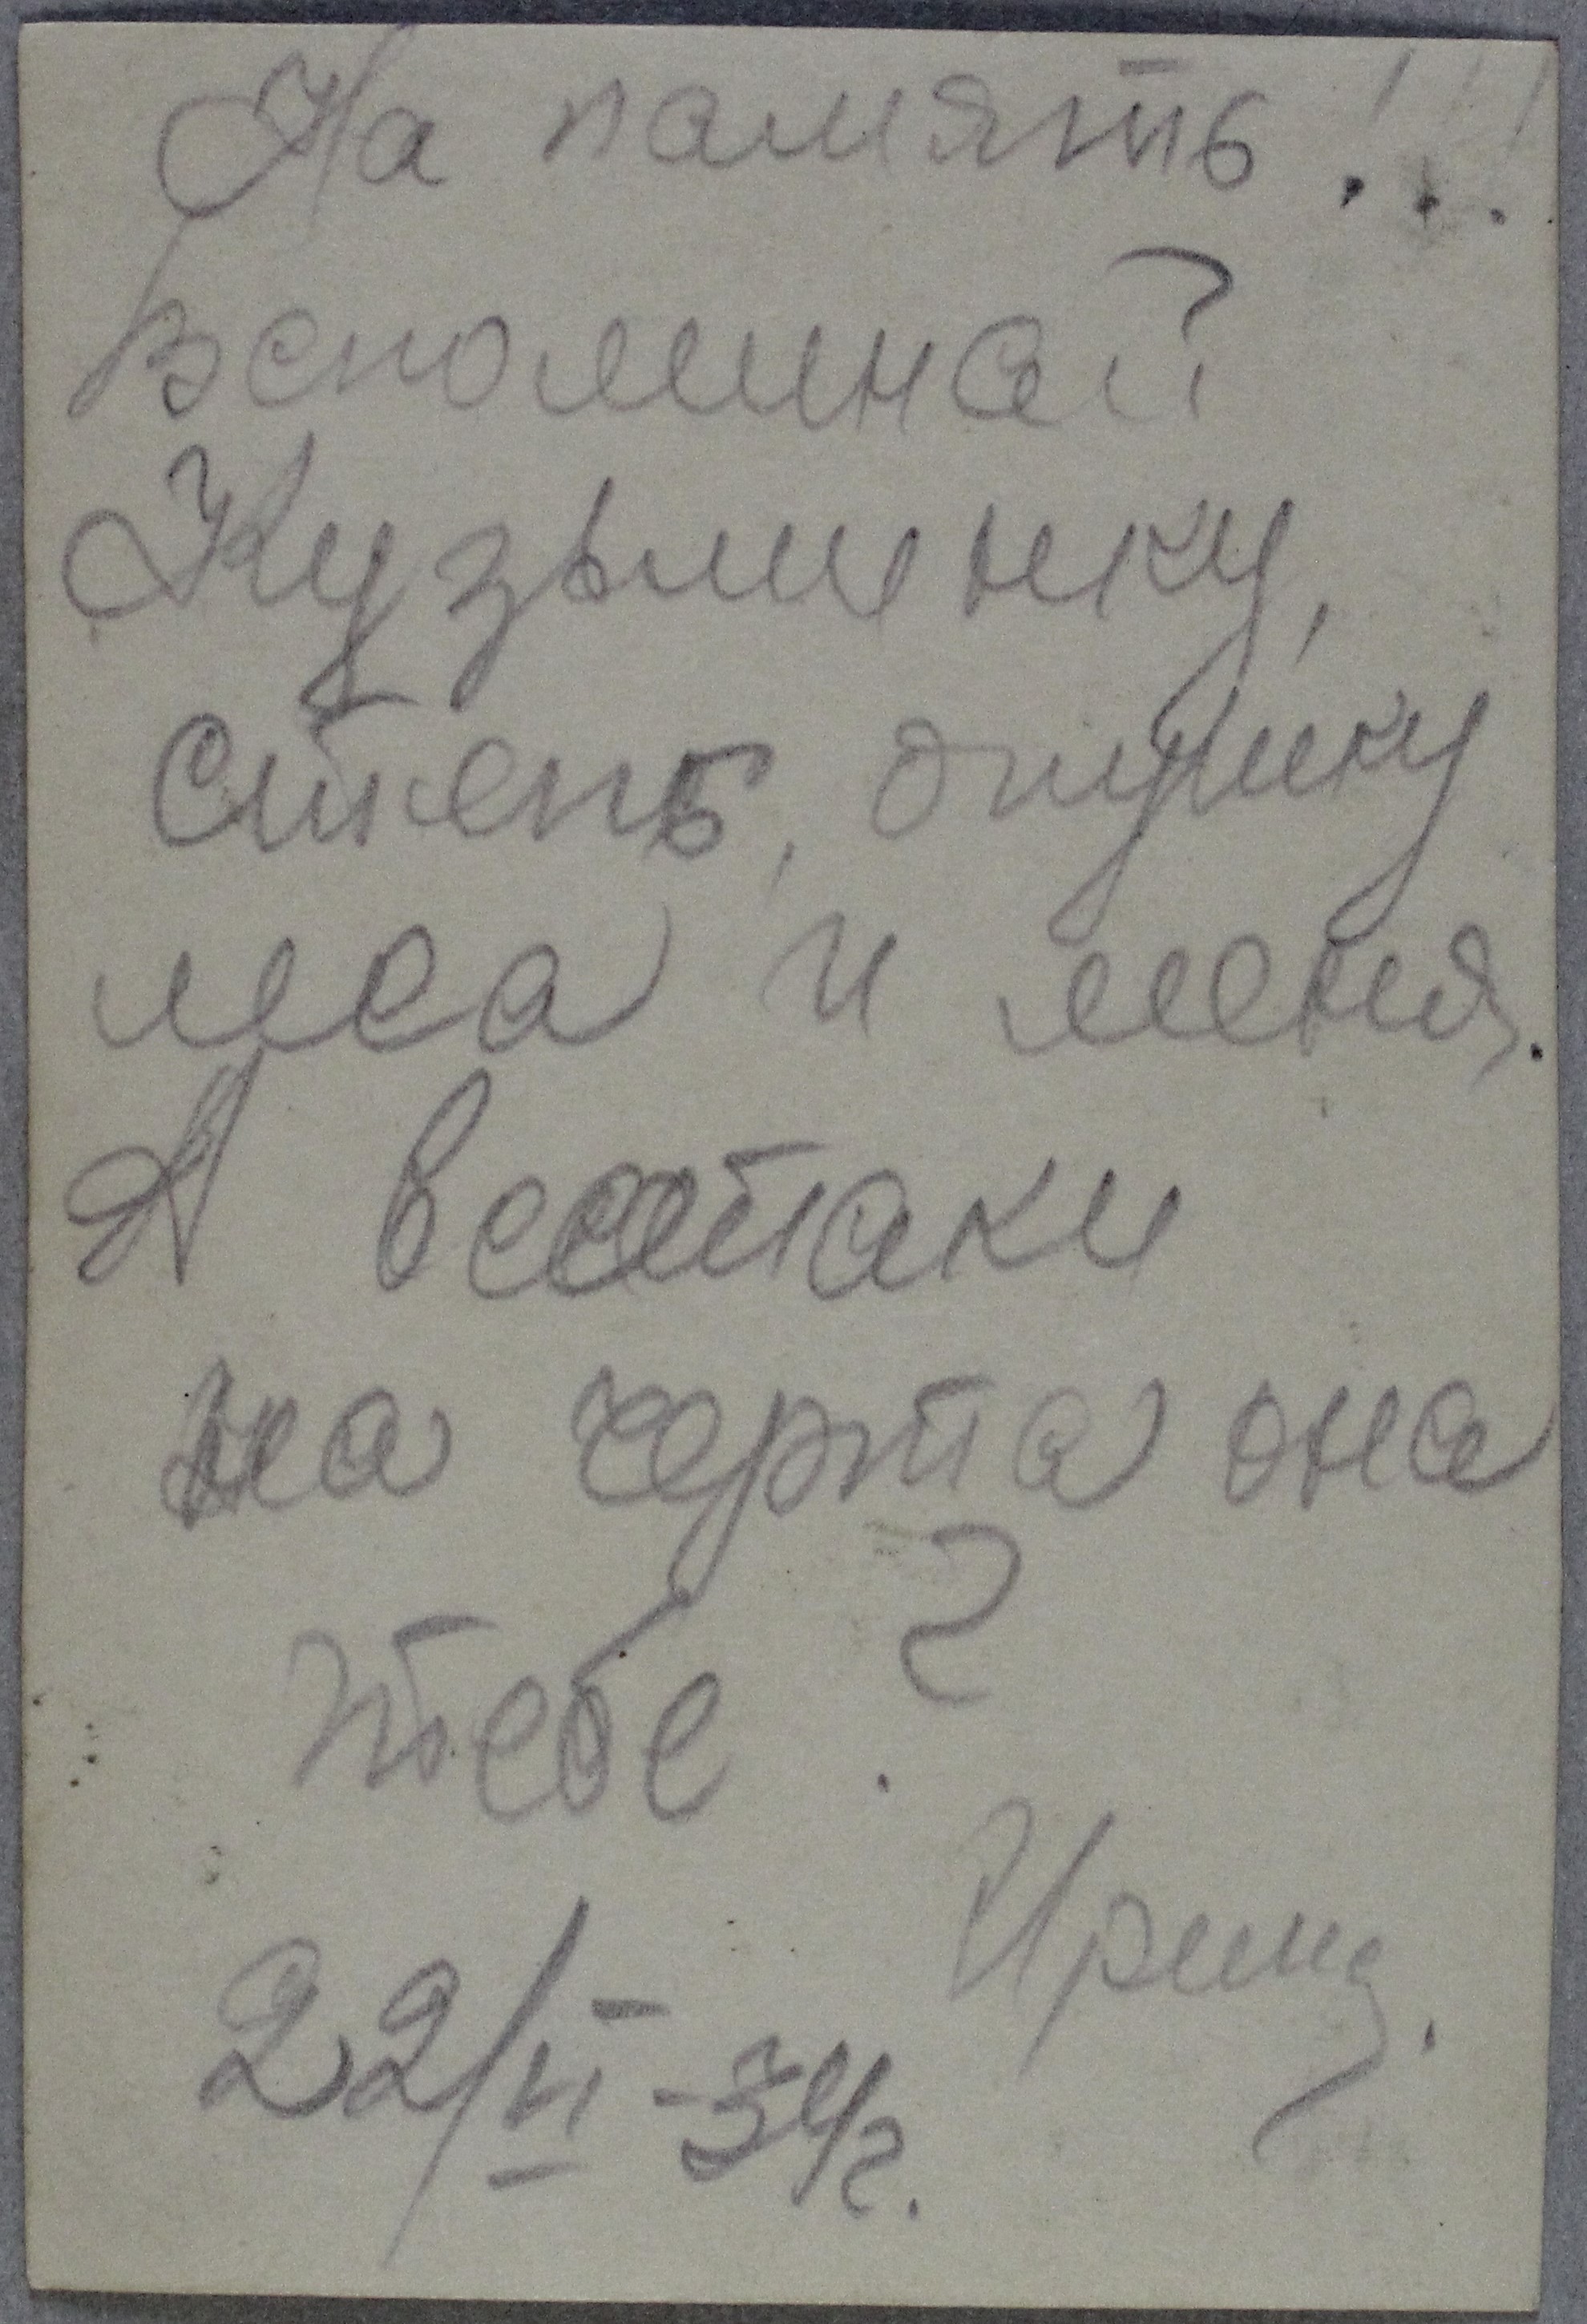 На память!!!
Вспоминай
Кузьминку,
степь, опушку
леса и меня.
А всетаки
на черта она
тебе?
Ирина.
22/VI-34г.